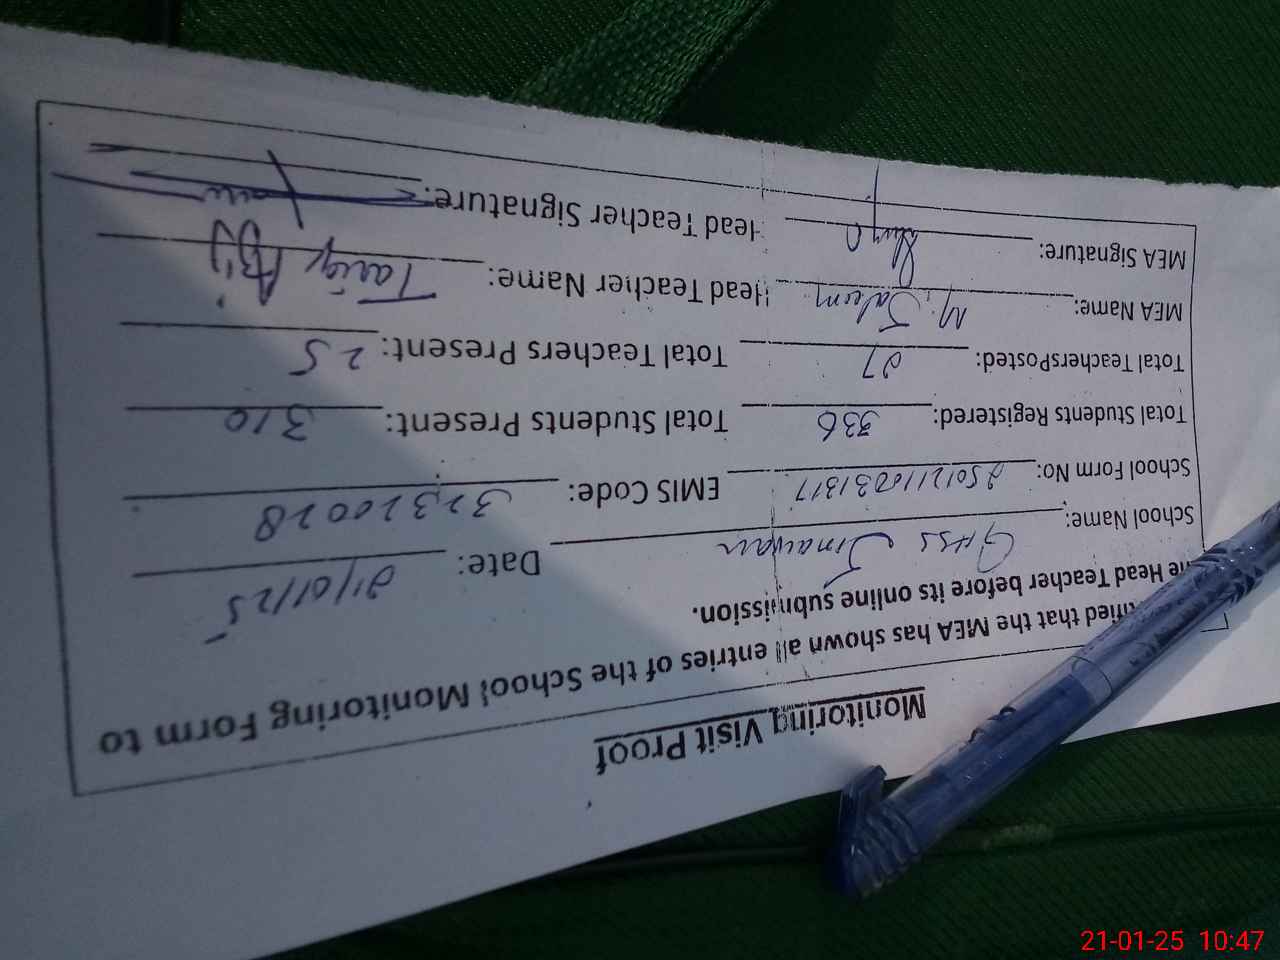 Monitoring Visit Proof
tified that the MEA has shown all entries of the School Monitoring Form to
he Head Teacher before its online submission.
School Name: GHSS Date: 21/01/25
School Form No: EMIS Code: 32320028
Total Students Registered: 336 Total Students Present: 310
Total TeachersPosted: 27 Total Teachers Present: 25
MEA Name: M. Saleem Head Teacher Name: Tariq Aziz
MEA Signature: Head Teacher Signature:
21-01-25 10:47